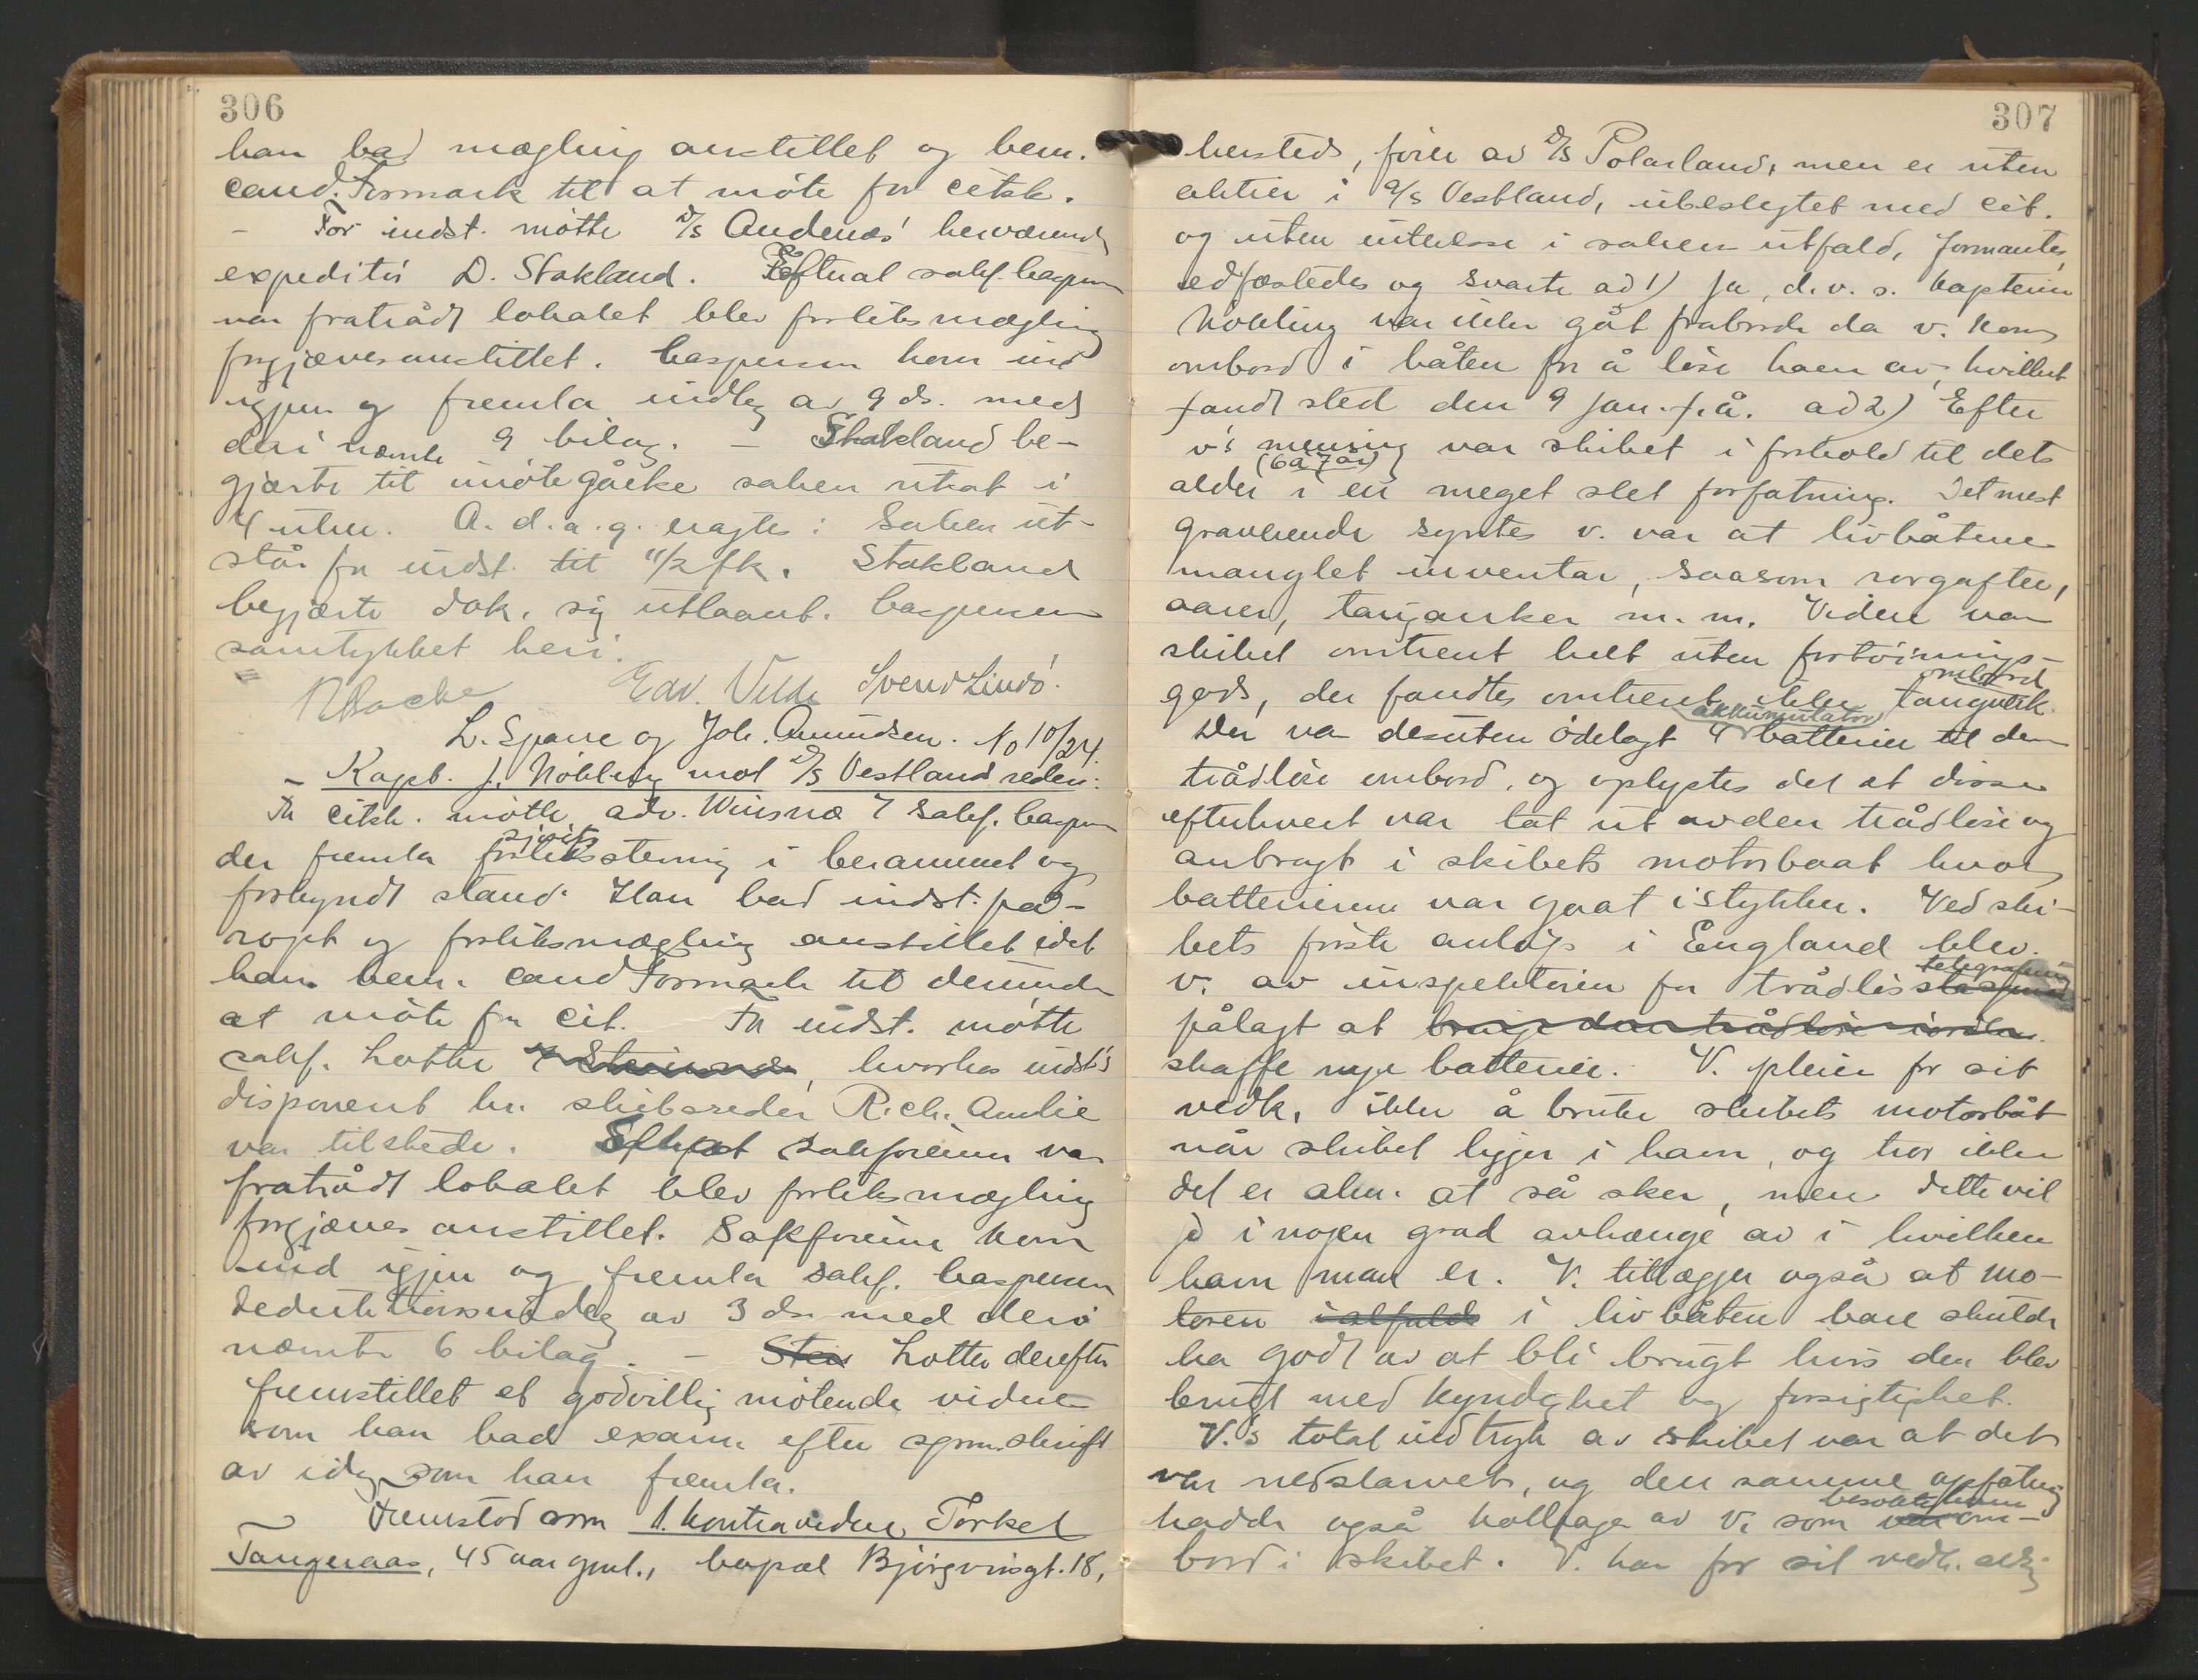 306
han bad mægling anstillet og bem.
cand. Formark til at möte for citsk.
– For indst. mötte D/S Andenæs' herværende
expeditör D. Stakland. Eftterat sakf. Caspersen
var fratrådt lokalet blev forliksmægling
forgjæves anstillet. Caspersen kom ind
igjen og fremla indlæg av 9 ds. med
deri nævnte 9 bilag. – Stakland be-
gjærte til imötegåelse saken utsat i
4 uker. A. d. a. g. eragtes: Saken ut-
står for indst. til 11/2 fk. Stakland
begjærte dok. sig utlaant. Caspersen
samtykket heri.
Edv. Vilde Svend Lindö.
L. Sparre og Joh. Amundsen. No 10/24.
– Kapt. J. Nökling mot D/S Vestland rederi:
For citsk. mötte adv. Winsnæs v/ sakf. Caspersen
der fremla sjöretsstevning i berammet og
forkyndt stand. Han bad indst. på-
ropt og forliksmægling anstillet idet
han bem. cand Formark til derunder
at möte for cit. For indst. mötte
sakf. Lotte , hvorhos indst's
disponent hr. skibsreder Rich. Amlie
var tilstede. Efterat sakförerne var
fratrådt lokalet blev forliksmægling
forgjæves anstillet. Sakförerne kom
ind igjen og fremla sakf. Caspersen
deduktionsindlæg av 3 ds. med deri
nævnte 6 bilag. – Lotte derefter
fremstillet et godvillig mötende vidne
som han bad exam. efter spm.skrift
av idag som han fremla.
Fremstod som 1. kontravidne Torkel
Tangeraas, 45 aar gml., bopæl Björgvinsgt. 18,
307
hersteds, förer av D/S Polarland, men er uten
aktier i A/S Vestland, ubeslegtet med cit.
og uten interesse i sakens utfald, formantes,
edfæstedes og svarte ad 1) Ja, d.v.s. kaptein
Nökling var ikke gåt fraborde da v. kom
ombord i båten for å löse ham av, hvilket
fandt sted den 9 jan. f.å. ad 2) Efter
v's mening var skibet i forhold til dets
(6 à 7 år)
alder i en meget slet forfatning. Det mest
graverende syntes v. var at livbåtene
manglet inventar, saasom rorgafter,
aarer, taug, anker m. m. Videre var
skibet omtrent helt uten fortöinings-
ombord
gods, der fandtes omtrent ikke taugverk.
akkumulator
Der var desuten ödelagt 4 batterier til den
trådlöse ombord, og oplystes det at disse
efterhvert var tat ut av den trådlöse og
anbragt i skibets motorbaat hvor
batterierne var gaat istykker. Ved ski-
bets förste anlöp i England blev
telegrafering
v. av inspektören for trådlös stasjoner
pålagt at bringe den trådlöse i orden.
skaffe nye batterier. V. pleier for sit
vedk. ikke å bruke skibets motorbåt
når skibet ligger i havn, og tror ikke
det er alm. at så sker, men dette vil
jo i nogen grad avhænge av i hvilken
havn man er. V. tillægger også at mo-
toren ialfald i livbåten bare skulde
ha godt av at bli brugt hvis den blev
brugt med kyndighet og forsigtighet.
V.'s total indtryk av skibet var at det
var nedslarvet, og den samme opfatning
besökte ham
hadde også kolleger av V. som var om-
bord i skibet. V. har for sit vedk. aldrig